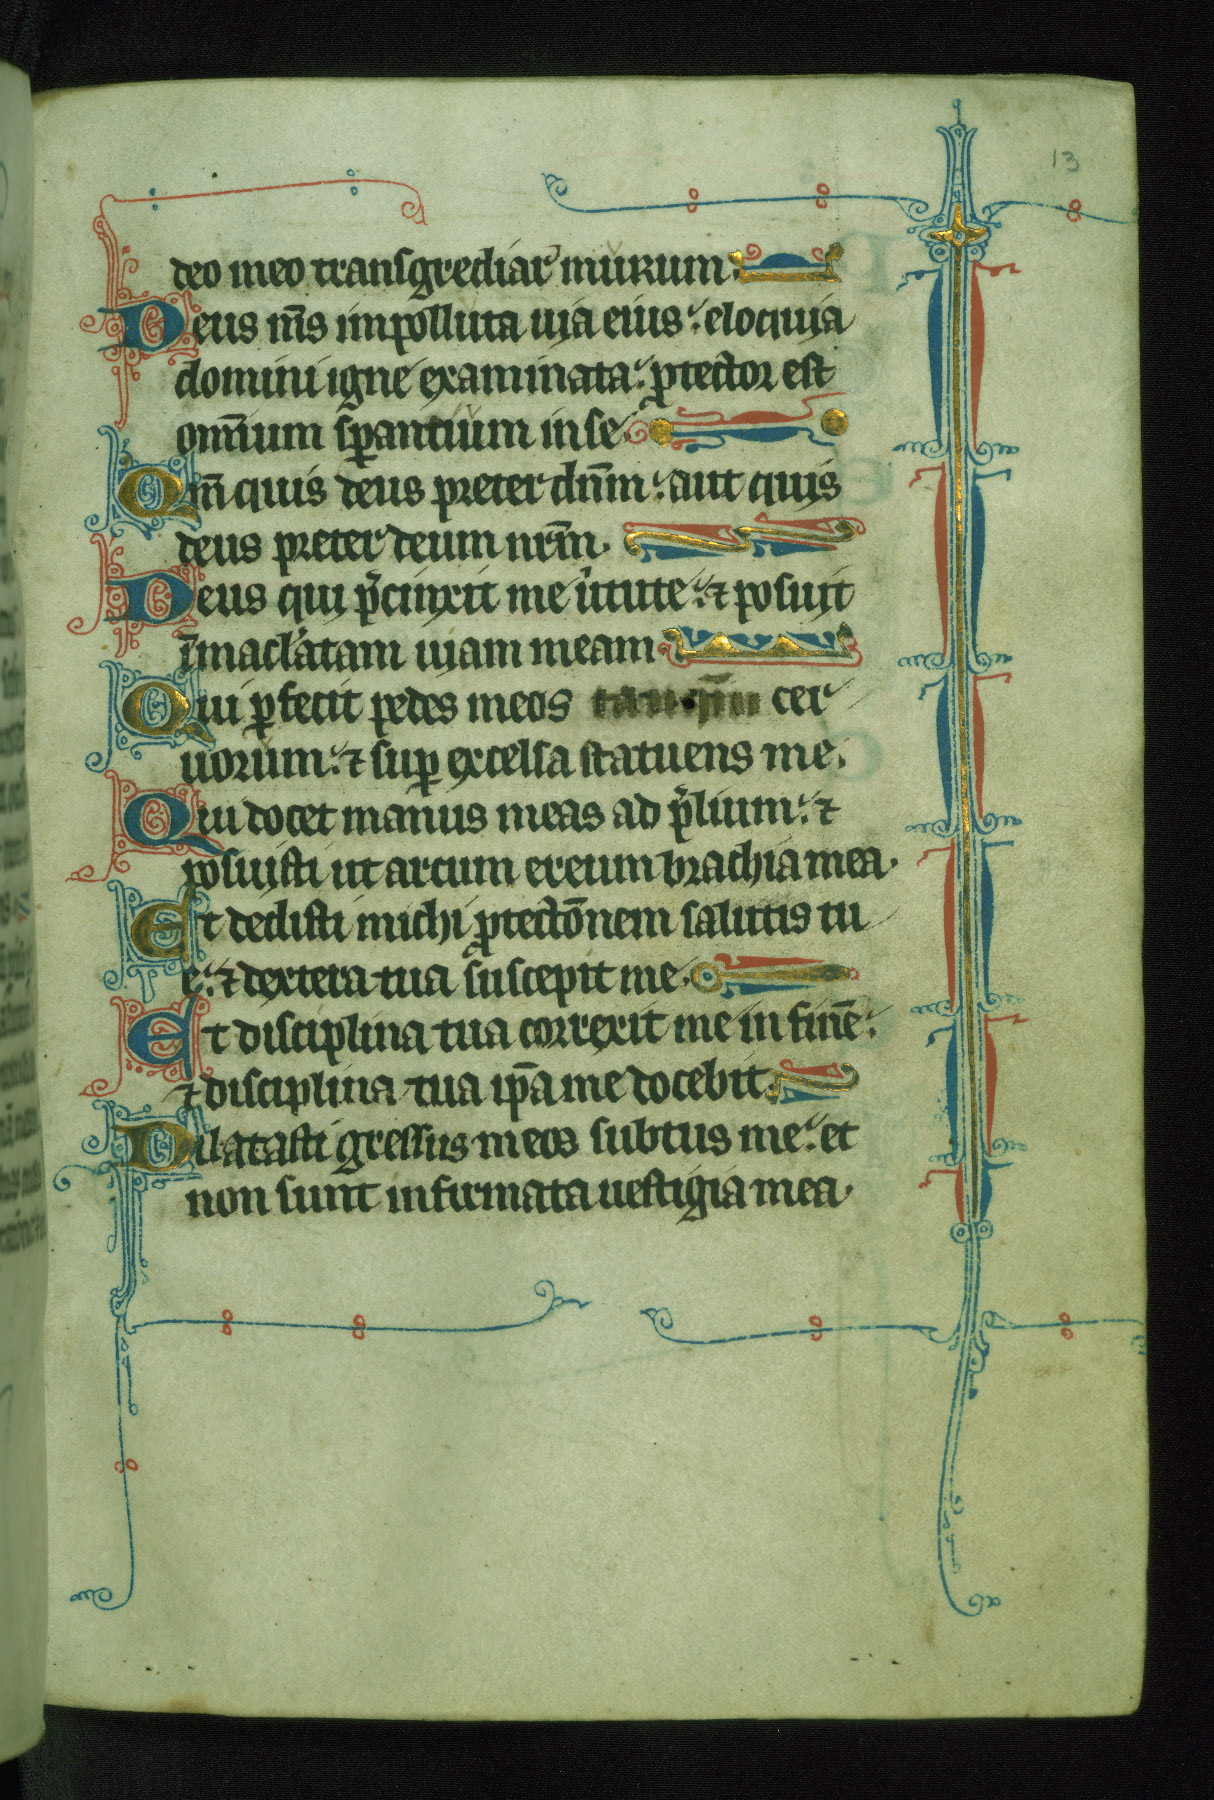 13
deo meo transgrediar murum.
Deus nr̄s impolluta uia eius: eloquia
domini igne examinata: ꝓtector est
om̄ium sꝑantium in se.
Qm̄ quis deus preter dn̄m: aut quis
deus preter deum nr̄m.
Deus qui p̄cinxit me u̓tute: ⁊ posuit
īmacl̓atam uiam meam.
Qui ꝑfecit pedes meos tanqm̄ cer
uorum: ⁊ suꝑ excelsa statuens me.
Qui docet manus meas ad p̄lium: ⁊
posuisti ut arcum ereum brachia mea.
Et dedisti michi ꝓtectōnem salutis tu
e: ⁊ dextera tua suscepit me.
Et disciplina tua correxit me in finē:
⁊ disciplina tua ip̄a me docebit.
Dilatasti gressus meos subtus me: et
non sunt infirmata uestigia mea.